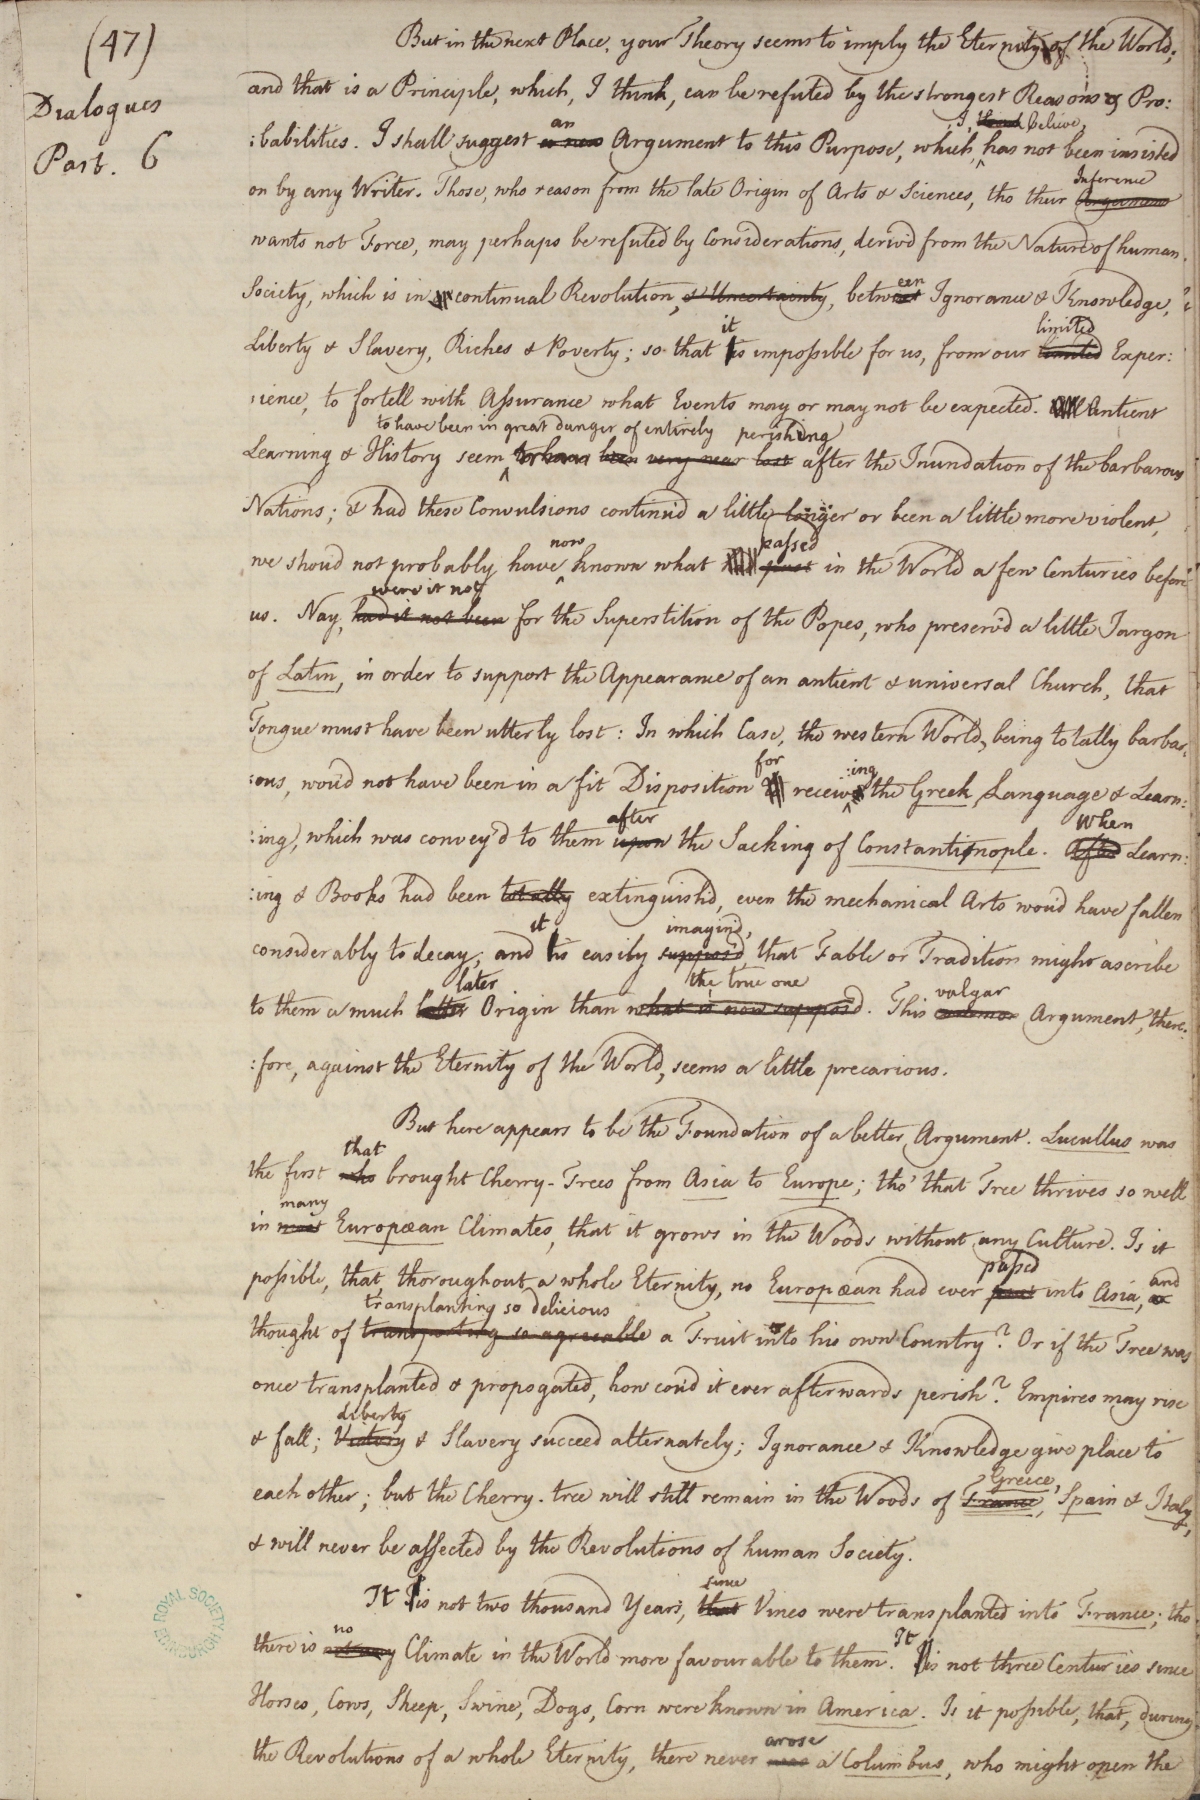 (47)
Dialogues
Part. 6
But in the next Place, your Theory seems to imply the Eternity of the World;
and that is a Principle, which, I think, can be refuted by the strongest Reasons & Pro:
I, believe,
:babilities. I shall suggest an Argument to this Purpose, which has not been insisted
on by any Writer. Those, who reason from the late Origin of Arts & Sciences, tho their Inference
wants not Force, may perhaps be refuted by Considerations, deriv'd from the Nature of human
Society, which is in continual Revolution, & Uncertainty, between Ignorance & Knowledge,
Liberty & Slavery, Riches & Poverty; so that it is impossible for us, from our limited Exper:
:ience, to fortell with Assurance what Events may or may not be expected. Antient
to have been in great danger of entirely perishing
Learning & History seem to have been very near lost after the Inundation of the barbarous
Nations; & had these Convulsions continu'd a little longer or been a little more violent,
we shoud not probably have now known what passed in the World a few Centuries before
were it not
us. Nay, had it not been for the Superstition of the Popes, who preserv'd a little Jargon
of Latin, in order to support the Appearance of an antient & universal Church, that
Tongue must have been utterly lost: In which Case, the western World, being totally barbar:
:ous, woud not have been in a fit Disposition for receiving the Greek Language & Learn:
:ing, which was convey'd to them after upon the Sacking of Constantinople. When After Learn:
:ing & Books had been totally extinguish'd, even the mechanical Arts woud have fallen
considerably to decay; and it is easily imagin'd, suppos'd, that Fable or Tradition might ascribe
the true one
to them a much later latter Origin than what is now suppos'd. This vulgar Argument, there:
:fore, against the Eternity of the World, seems a little precarious.
But here appears to be the Foundation of a better Argument. Lucullus was
the first that who brought Cherry-Trees from Asia to Europe; tho' that Tree thrives so well
in many most European Climates, that it grows in the Woods without any Culture. Is it
possible, that thoroughout a whole Eternity, no European had ever passed past into Asia, and
transplanting so delicious
thought of transporting so agreeable a Fruit into his own Country? Or if the Tree was
once transplanted & propogated, how coud it ever afterwards perish? Empires may rise
& fall; Liberty & Slavery succeed alternately; Ignorance & Knowledge give place to
each other; but the Cherry-tree will still remain in the Woods of Greece, France, Spain & Italy,
& will never be affected by the Revolutions of human Society.
It is not two thousand Years, since that Vines were transplanted into France; tho
there is no not any Climate in the World more favourable to them. It is not three Centuries since
Horses, Cows, Sheep, Swine, Dogs, Corn were known in America. Is it possible, that, during
the Revolutions of a whole Eternity, there never arose was a Columbus, who might open the
ROYAL SOCIETY EDINBURGH